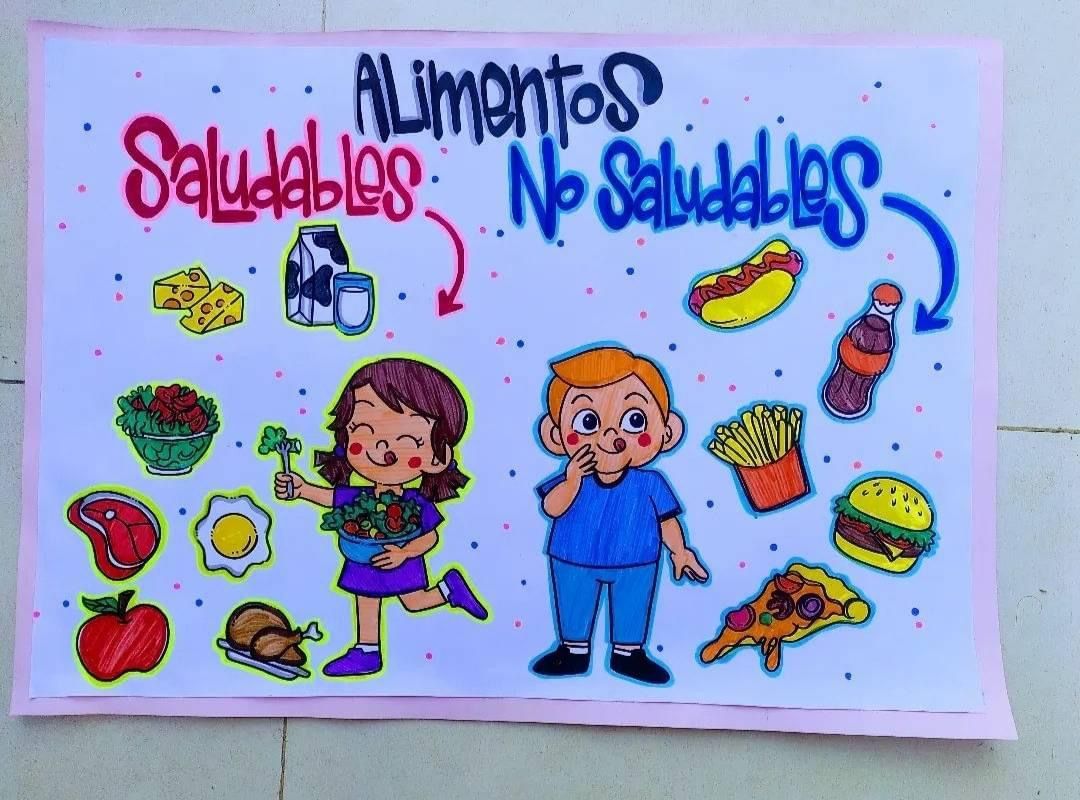 Alimentos
Saludables
No Saludables